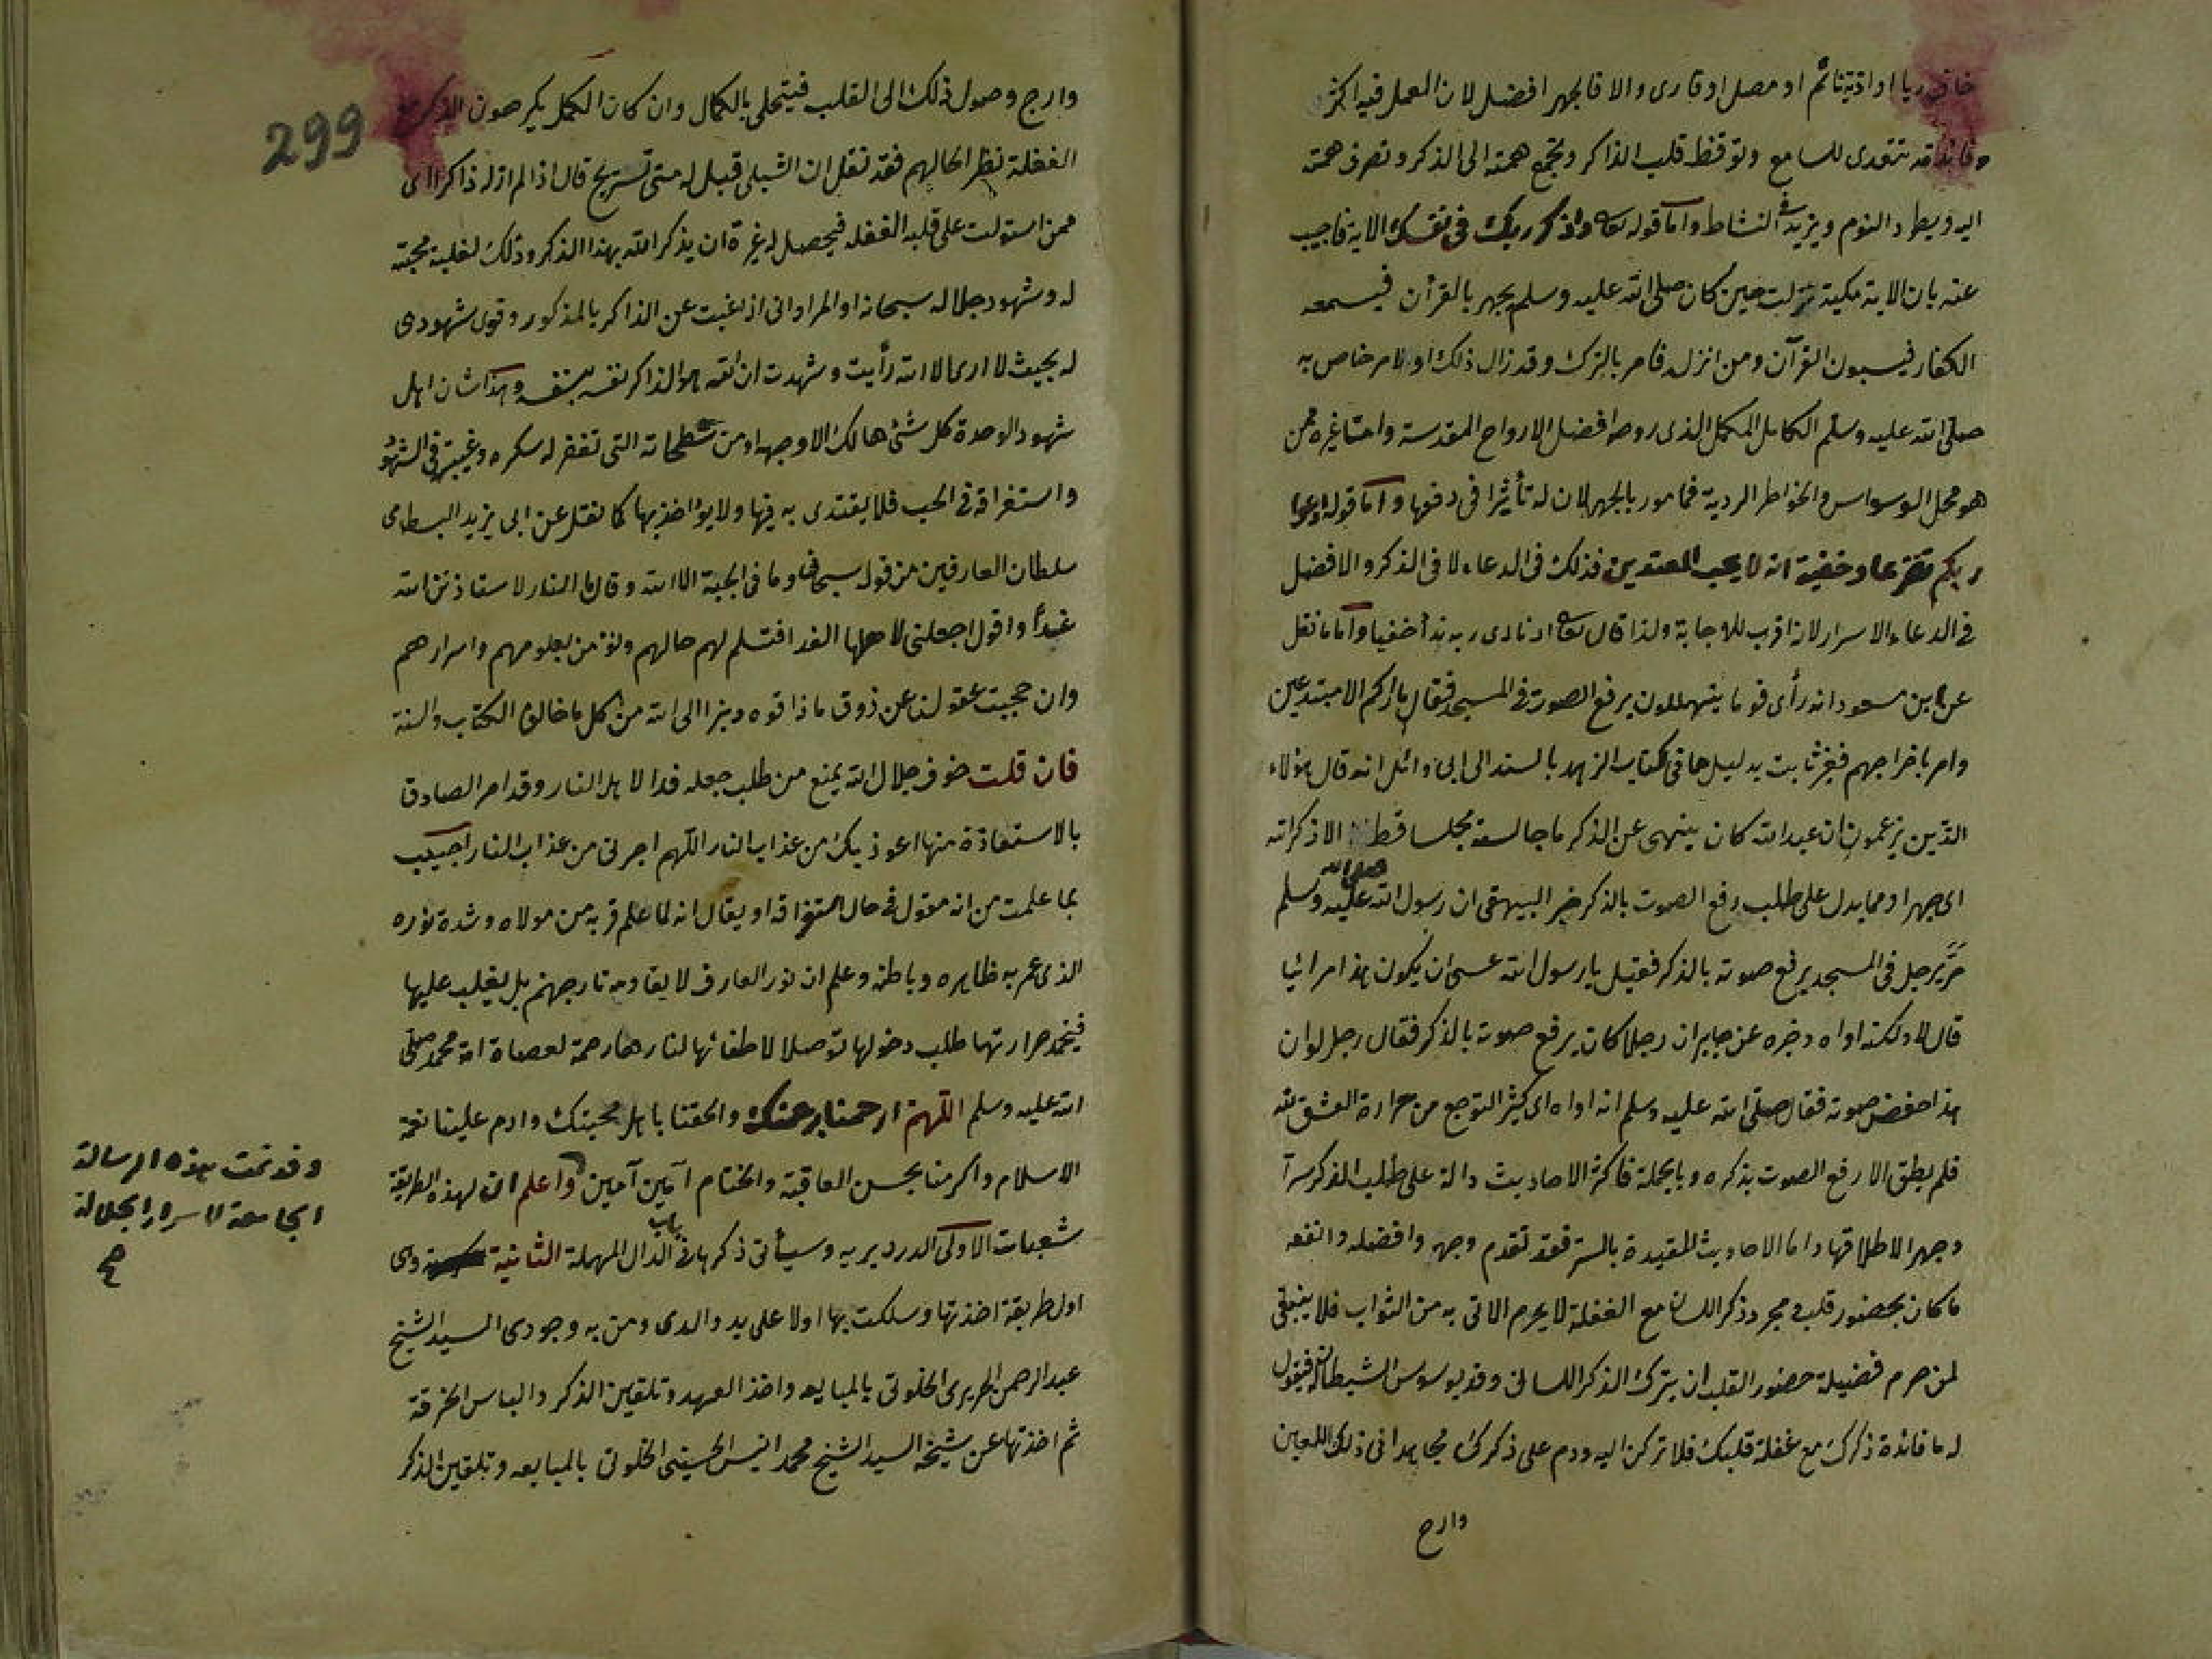 خاف رياء او اذية نائم او مصل او قارى والا فالجهر افضل لان العمل فيه اكثر
وفائدته تتعدى للسامع وتوقظ قلب الذاكر وتجمع همته الى الذكر وتصرف همته
اليه ويطرد النوم ويزيد فى النشاط واما قوله تعا واذكر ربك فى نفسك الاية فاجيب
عنه بان الاية مكية نزلت حين كان صلى الله عليه وسلم يجهر بالقرأن فيسمعه
الكفار فيسبون القرآن ومن انزله فامر بالترك وقد زال ذلك او الامر خاص به
صلى الله عليه وسلم الكامل المكمل الذى روحه افضل الارواح المقدسة واما غيره ممن
هو محل الوسواس والخواطر الردية فمامور بالجهر لان له تأثيرا فى دفعها واما قوله ادعوا
ربكم تضرعا وخفية انه لا يحب المعتدين فذلك فى الدعاء لا فى الذكر والافضل
فى الدعاء الاسرار لانه اقرب للاجابة ولذا قال تعا اذ نادى ربه ندأ خفيا واما ما نقل
عن ابن مسعود انه رأى قوما يتهللون برفع الصوت فى المسجد فقال ما اراكم الا مبتدعين
وامر باخراجهم فغير ثابت بدليل ما فى كتاب الزهد بالسند الى ابى وائل انه قال هؤلاء
الذين يزعمون ان عبد الله كان ينهى عن الذكر ما جالسته مجلسا قط الا ذكر الله
اى جهرا ومما يدل على طلب رفع الصوت بالذكر خبر البيهقى ان رسول الله صلى الله عليه وسلم
مر برجل فى المسجد يرفع صوته بالذكر فقيل يا رسول الله عسى ان يكون هذا مرائيا
قال لا ولكنه اواه وخبره عن جابر ان رجلا كان يرفع صوته بالذكر فقال رجل لو ان
هذا اخفض صوته فقال صلى الله عليه وسلم انه اواه اى كثير التوجع من حرارة العشق لله
فلم يطق الا رفع الصوت بذكره وبالجملة فاكثر الاحاديث دالة على طلب الذكر سرآ
وجهرا لاطلاقها واما الاحاديث المقيدة بالسر فقد تقدم وجهه وافضله وانفعه
ما كان بحضور قلب ومجرد ذكر اللسان مع الغفلة لا يحرم الاتى به من الثواب فلا ينبغى
لمن حرم فضيلة حضور القلب ان يترك الذكر اللسانى وقد يوسوس الشيطان له فيقول
له ما فائدة ذكرك مع غفلة قلبك فلا تركن اليه ودم على ذكرك مجاهدا فى ذلك اللعين
وارج
299
وارج وصول ذلك الى القلب فيتحلى بالكمال وان كان الكمل يكرهون الذكر مع
الغفلة نظرا لحالهم فقد نقل ان الشبلى قيل له متى تستريح قال اذا لم ار له ذاكرا اى
ممن استولت على قلبه الغفله فيحصل له غيرة ان يذكر الله بهذا الذكر وذلك لغلبة محبته
له وشهود جلاله سبحانه او المراد انى اذا غبت عن الذاكر بالمذكور وقوى شهودى
له بحيث لا ارى الا الله رأيت وشهدت ان الله هو الذاكر نفسه بنفسه وهذا شان اهل
شهود الوحدة كل شئ هالك الا وجهه او من شطحاته التى تغفر له لسكره وغيبته فى الشهود
واستغراقه فى الحب فلا يقتدى به فيها ولا يؤاخذ بها كما نقل عن ابى يزيد البسطامى
سلطان العارفين من قوله سبحانى وما فى الجبة الا الله وقال ما النار لاستاذنن الله
غدأ واقول اجعلنى لاهلها الفدا فنسلم لهم حالهم ونؤمن بعلومهم واسرارهم
وان حجبت عقولنا عن ذوق ما ذاقوه ونبرأ الى الله من كل ما خالف الكتاب والسنة
فان قلت خوف جلال الله يمنع من طلب جعله فدا لاهل النار وقد امر الصادق
بالاستعاذة منها اعوذ بك من عذاب النار اللهم اجرنى من عذاب النار اجيب
بما علمت من انه مقول فى حال استغراقه او يقال انه لما علم قربه من مولاه وشدة نوره
الذى عمر به ظاهره وباطنه وعلم ان نور العارف لا يقاومه نار جهنم بل يغلب عليها
فيخمد حرارتها طلب دخولها توصلا لاطفائها لنارها رحمة لعصاة امة محمد صلى
الله عليه وسلم اللهم ارحمنا برحمتك والحقنا باهل محبتك وادم علينا نعمة
الاسلام واكرمنا بحسن العاقبة والختام آمين آمين واعلم ان لهذه الطريقة
شعبات الاولى الدرديريه وسيأتى ذكرها فى باب الدال المهملة الثانية وهى
اول طريقة اخذتها وسلكت بها اولا على يد والدى ومن به وجودى السيد الشيخ
عبد الرحمن الحريرى الخلوتى بالمبايعه واخذ العهد وتلقين الذكر والباس الخرقة
ثم اخذتها عن شيخه السيد الشيخ محمد انيس الحسينى الخلوتى بالمبايعه وتلقين الذكر
وقد تمت هذه الرسالة
الجامعة لاسرار الجلالة